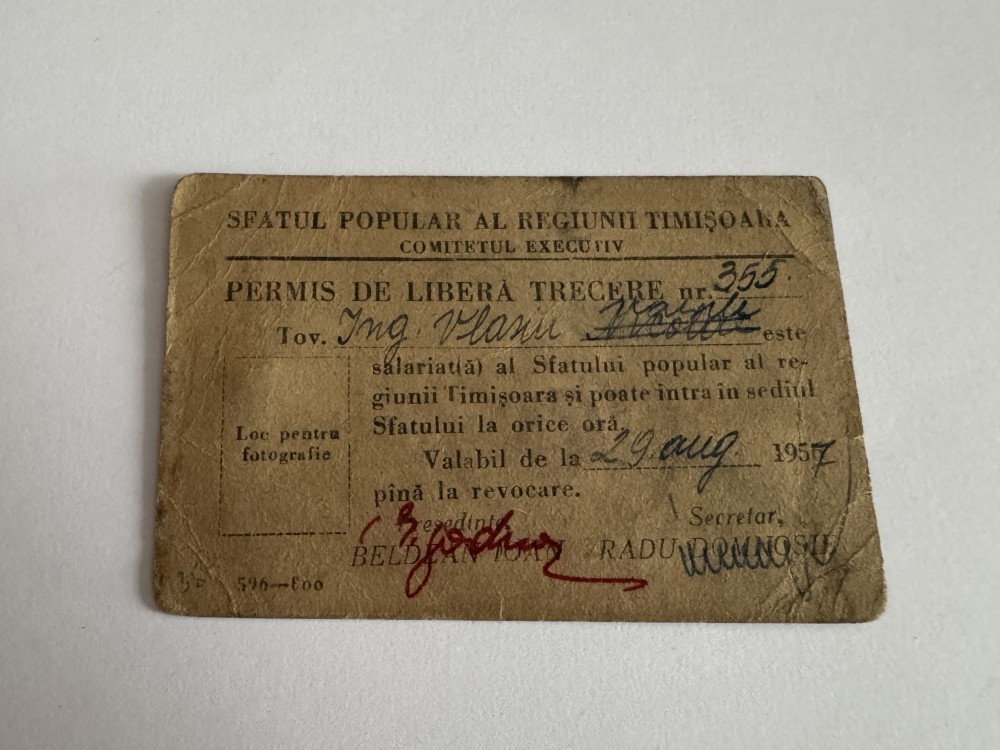 SFATUL POPULAR AL REGIUNII TIMIȘOARA
COMITETUL EXECUTIV
PERMIS DE LIBERĂ TRECERE nr. 355.
Tov. Ing. este
salariat(ă) al Sfatului popular al re-
giunii Timișoara și poate intra în sediul
Sfatului la orice oră.
Loc pentru
fotografie
Valabil de la 29. aug. 1957
pînă la revocare.
Președinte, Secretar,
BELDEAN IOAN RADU DOMNOSIE